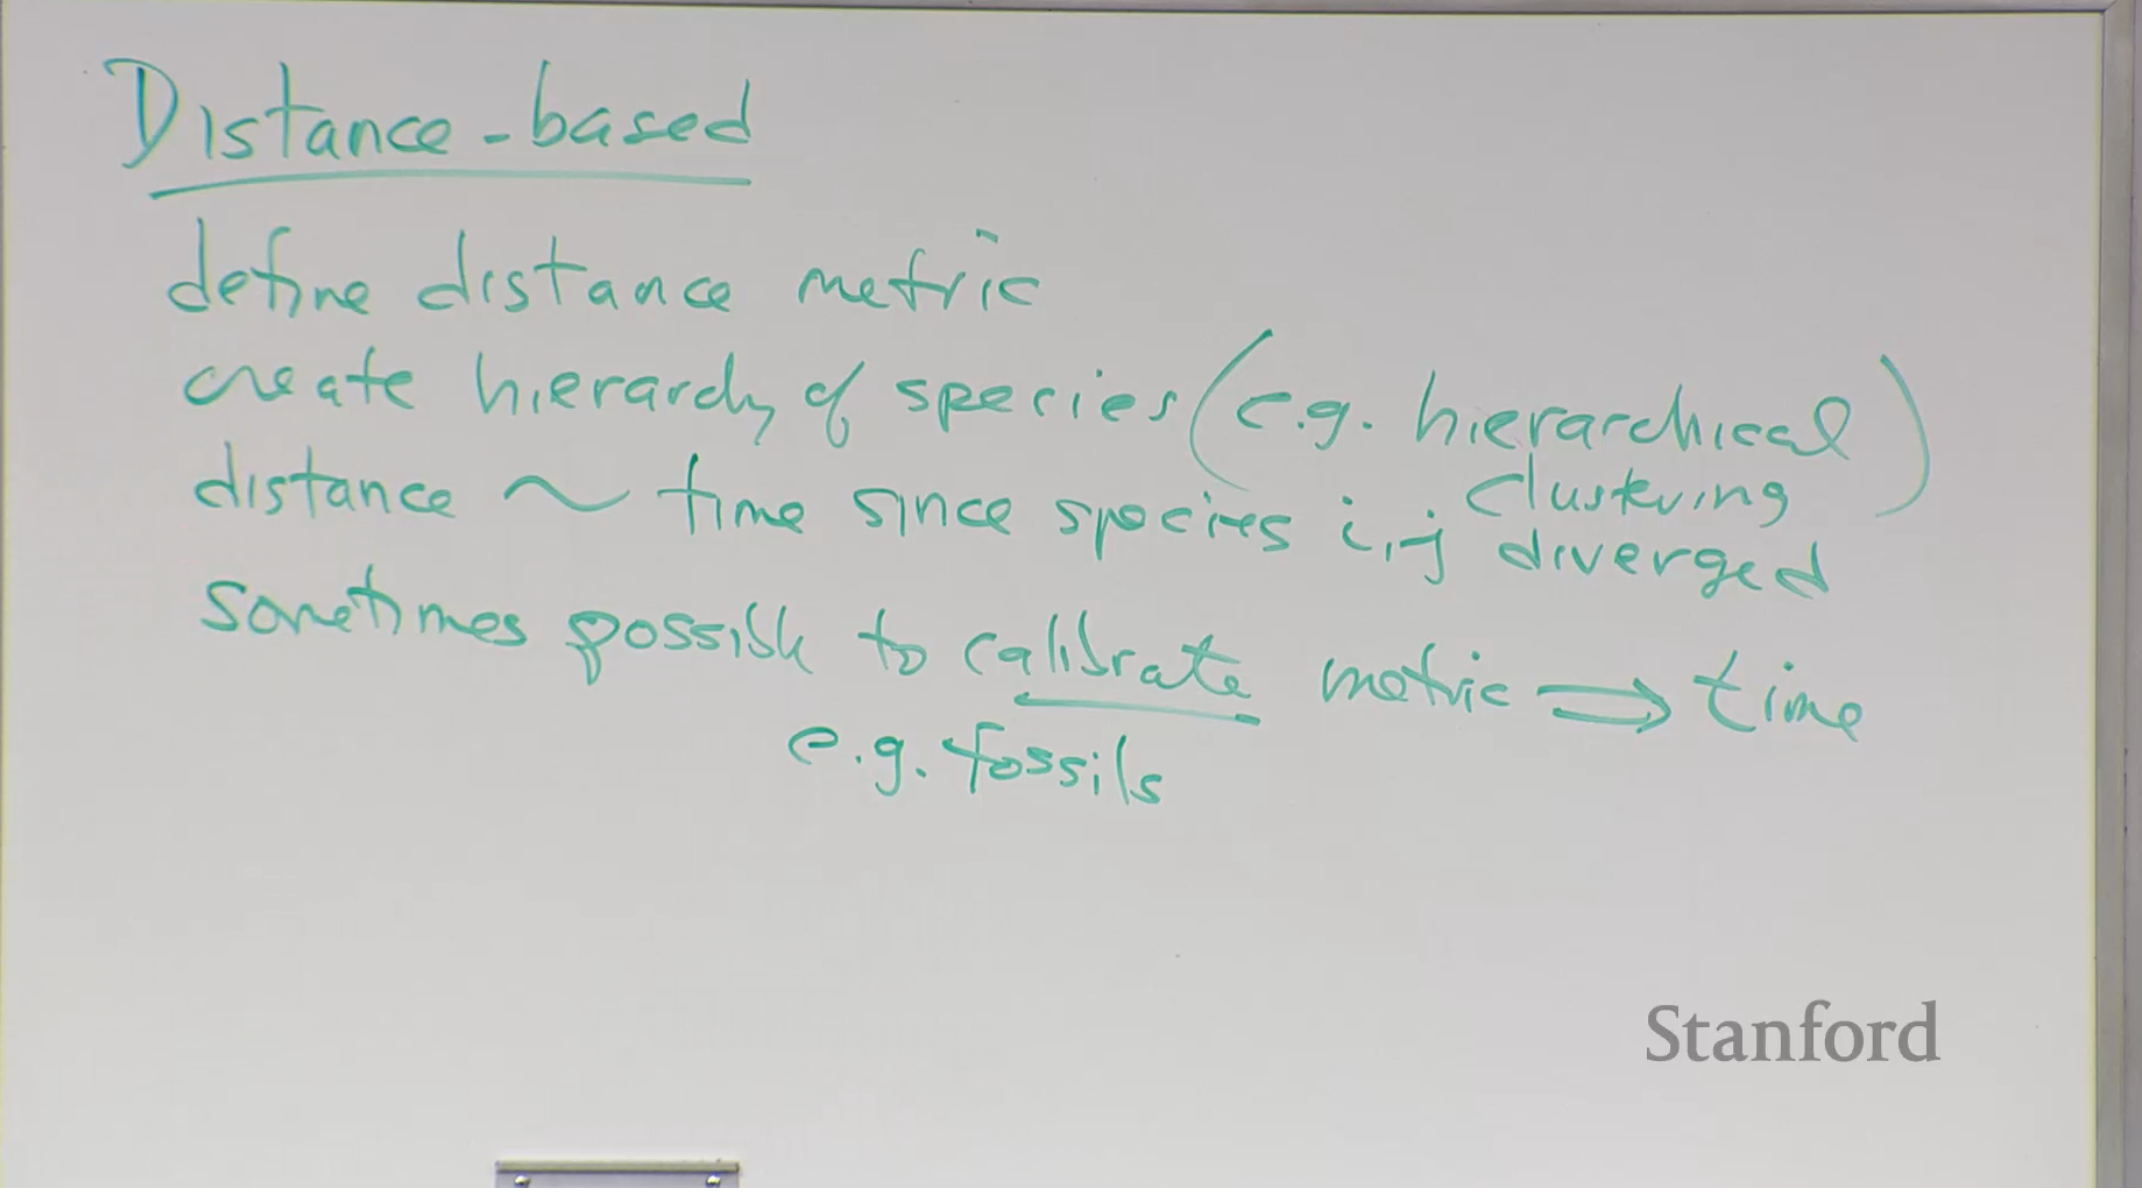 Distance-based
define distance metric
create hierarchy of species (e.g. hierarchical
clustering)
distance ~ time since species i,j diverged
sometimes possible to calibrate metric ⇒ time
e.g. fossils
Stanford